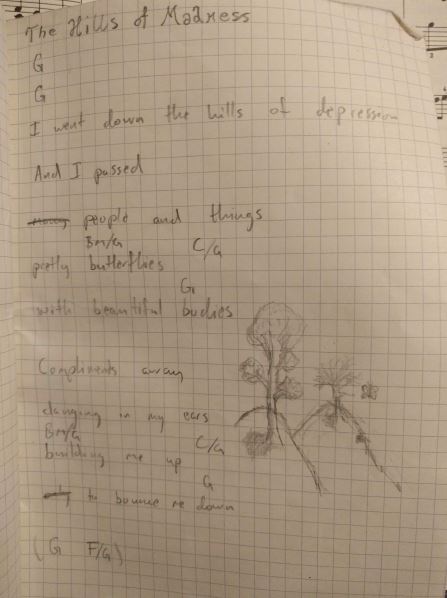 The Hills of Madness
G
G
I went down the hills of depression
And I passed
people and things
Bm/G C/G
pretty butterflies
G
with beautiful bodies
Compliments array
clanging in my ears
Bm/G C/G
building me up
G
to bounce me down
(G F/G)